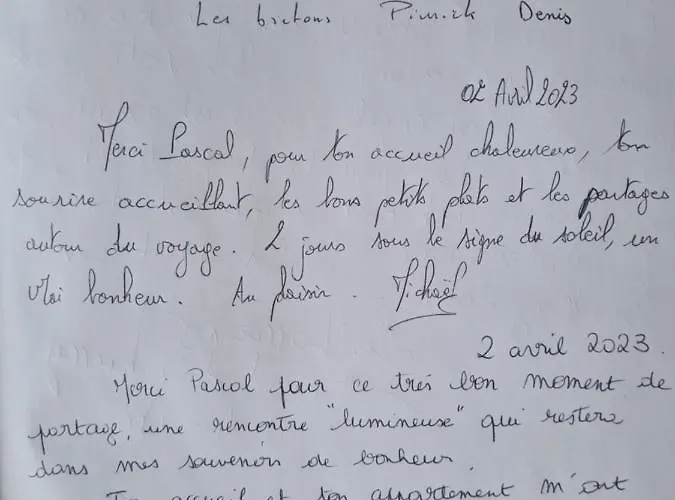 Les bretons Denis
02 Avril 2023
Merci Pascal, pour ton accueil chaleureux, ton
sourire accueillant, les bons petits plats et les partages
autour du voyage. 2 jours sous le signe du soleil, un
vrai bonheur. Au plaisir. Michaël
2 avril 2023.
Merci Pascal pour ce très bon moment de
partage, une rencontre "lumineuse" qui restera
dans mes souvenirs de bonheur.
Ton accueil et ton appartement m'ont